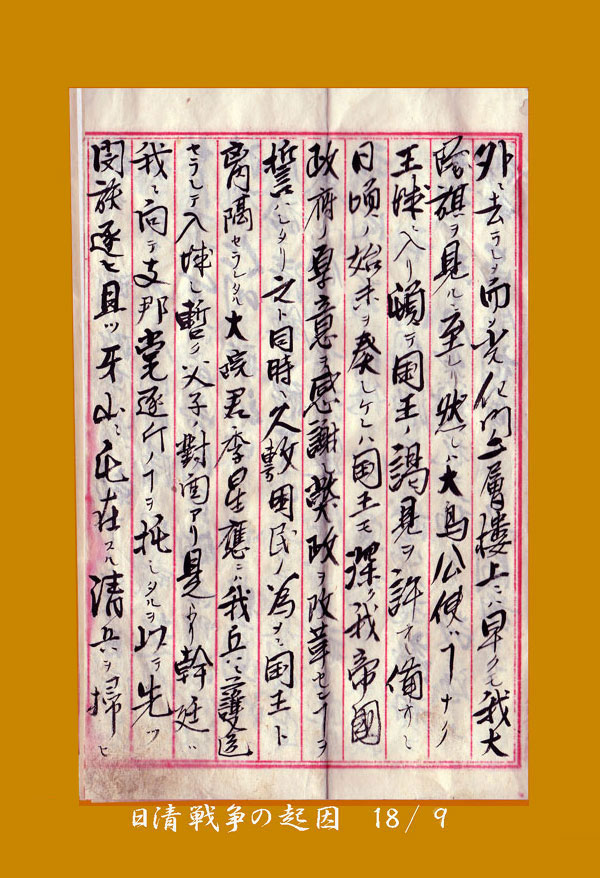 外ニ去ラシメ而〆光化門二層楼上ニハ早クモ我大
隊旗ヲ見ルニ至レリ然レハ大鳥公使ハ ナク
王城ニ入リ頓テ国王ノ謁見ヲ許サレ備サニ
日頃ノ始末ヲ奏シケレハ国王モ深ク我帝國
政府ノ厚意ヲ感謝シ獘政ヲ改革センヿヲ
誓ハレタリ之ト同時ニ久敷国民ノ為メニ国王ト
离隔セラレタル大院君李昰應ニハ我兵ニ護送
セラレテ入城シ暫ク父子ノ對面アリ是ヨリ韓廷ハ
我ニ向テ支那党逐斥ノヿヲ托シタルヲ以テ先ツ
閔族逐ヒ且ツ牙山ニ屯在スル清兵ヲ掃ヒ
日清戦争の起因 18/9